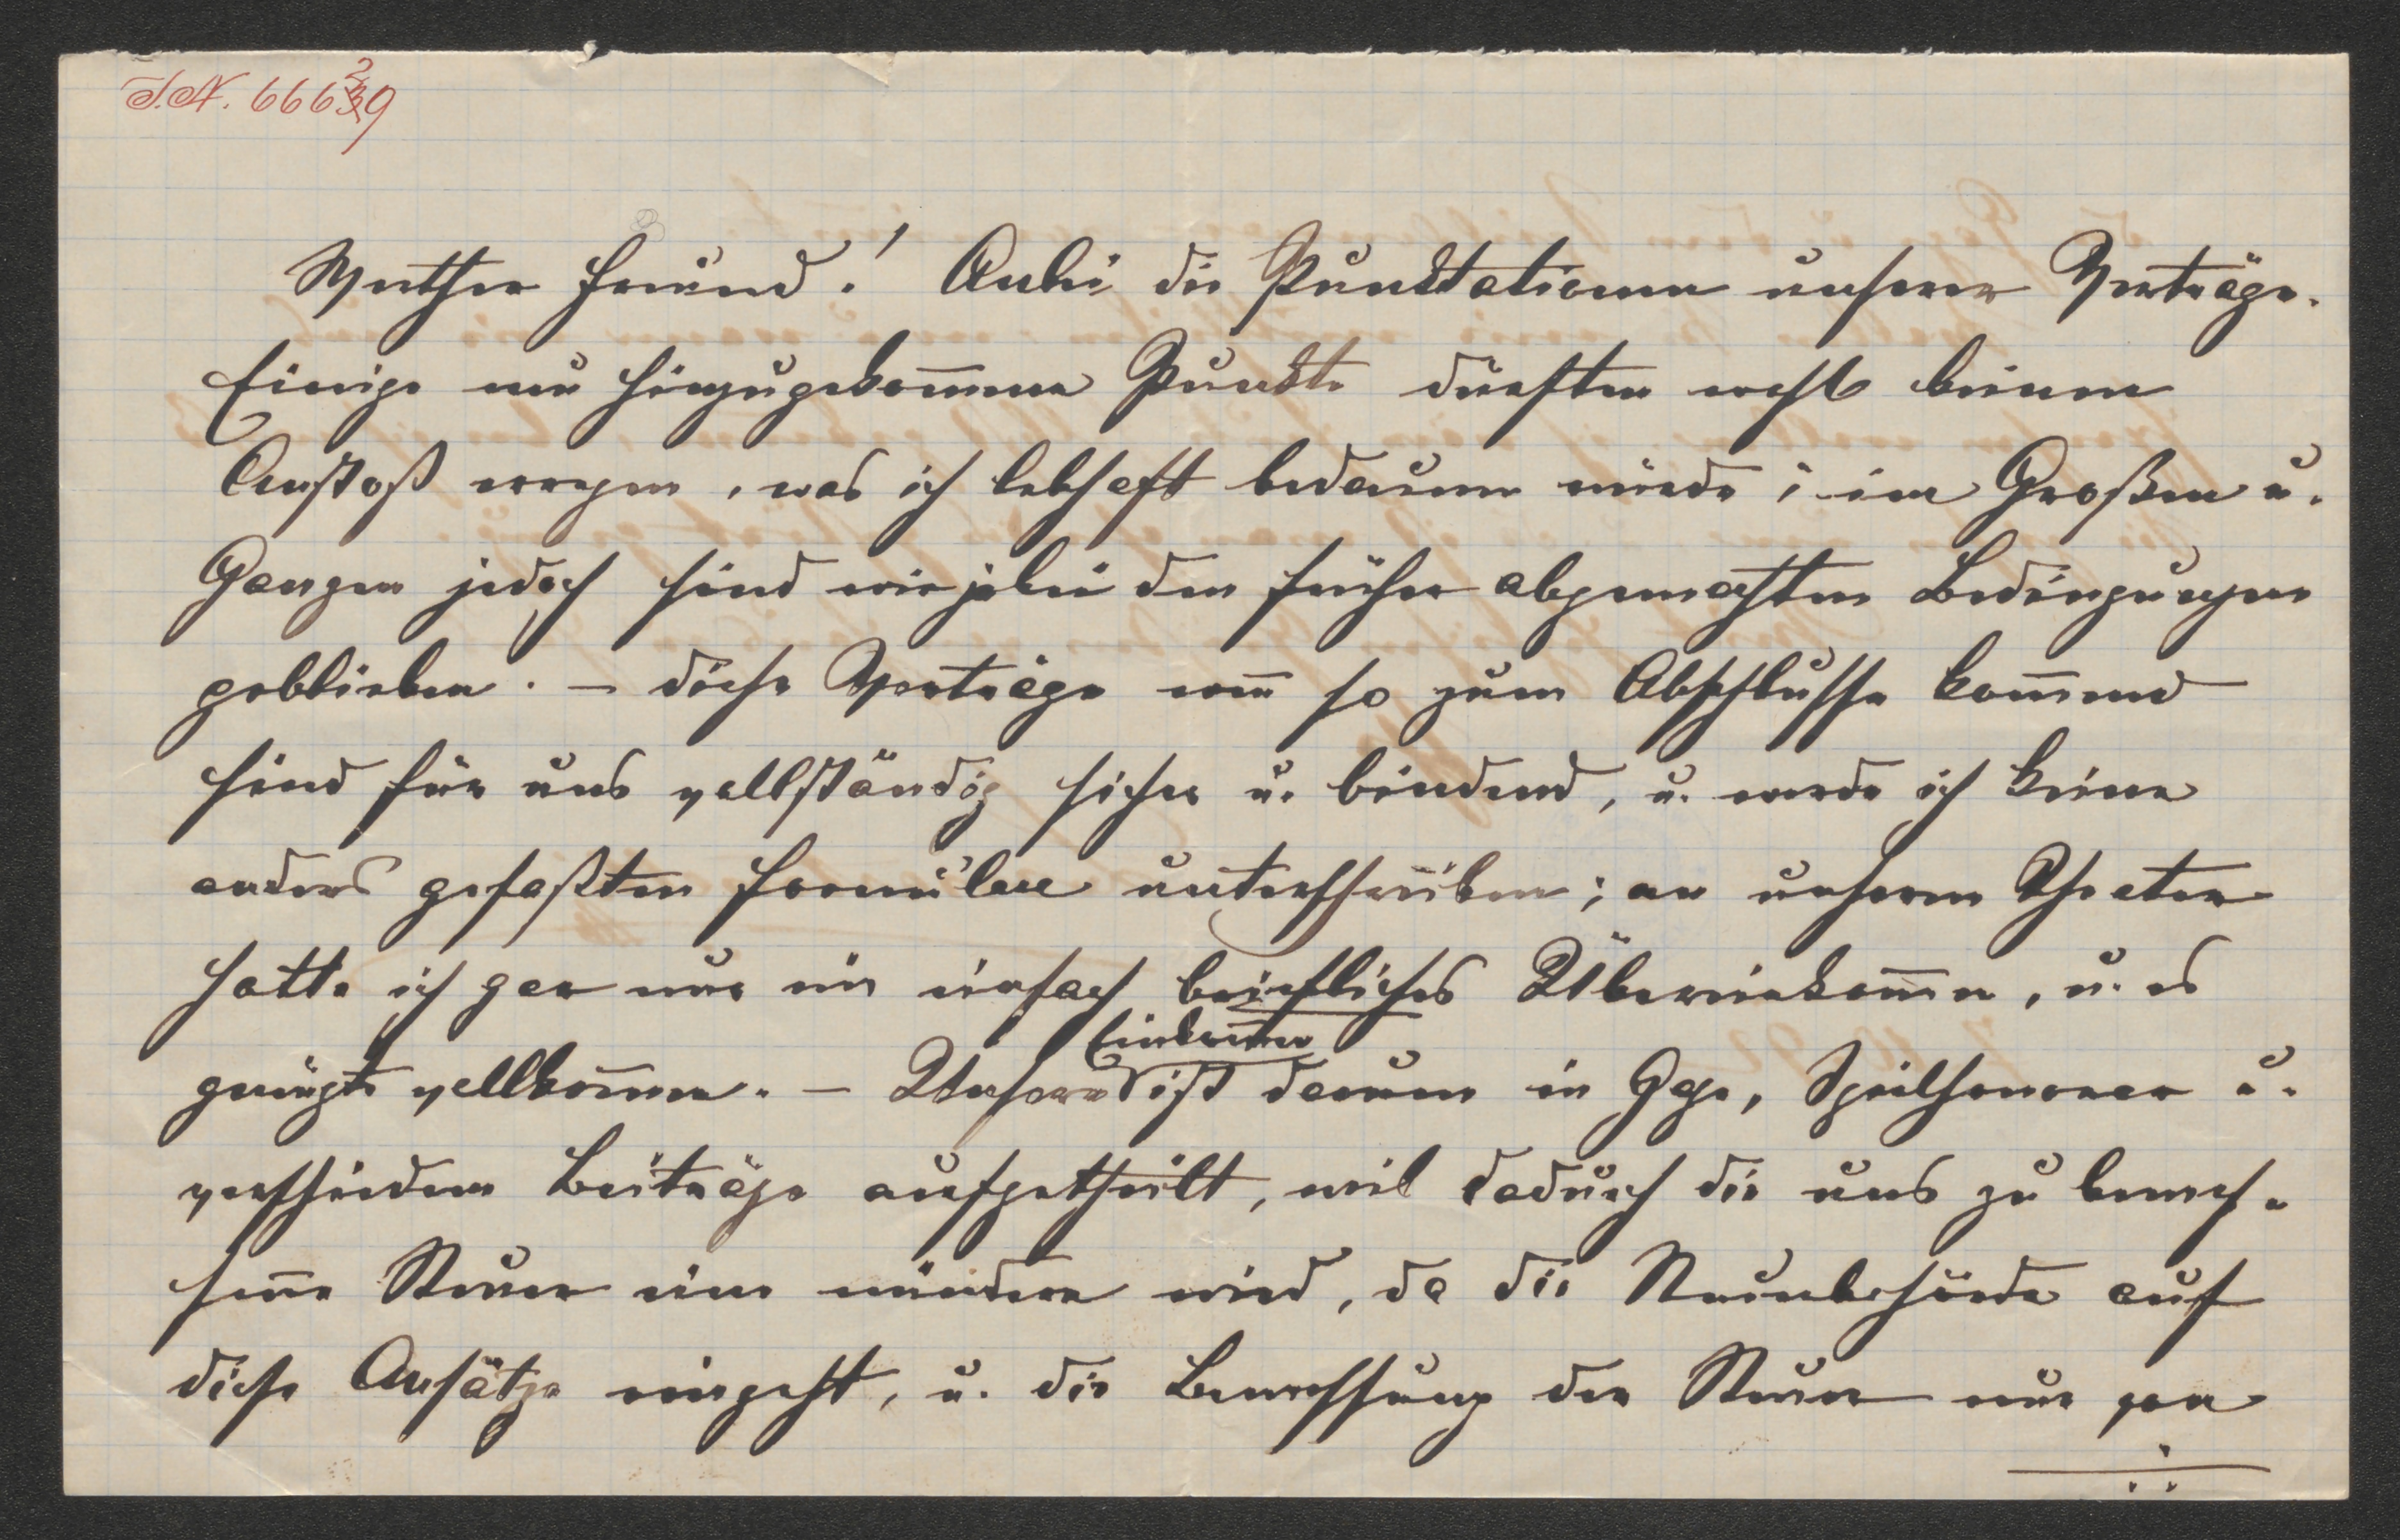 I.N. 66629
Werther Freund! Anbei die Punktationen unserer Verträge.
Einige neu hinzugekom̄ene Punkte dürften wohl keinen
Anstoß erregen, was ich lebhaft bedauern würde; im Großen u.
Ganzen jedoch sind wir ja bei den früher abgemachten Bedingungen
geblieben. – Diese Verträge wen̄ so zum Abschlusse kom̄end
sind für uns vollständig sicher u. bindend, u. werde ich keine
anders gefaßten Formulare unterschreiben; an unserem Theater
hatte ich gar nur ein einfach briefliches Übereinkom̄en, u. es
genügte vollkom̄en. – Unser Einkom̄en ist darum in Gage, Spielhonorar u.
verschiedene Beiträge aufgetheilt, weil dadurch die uns zu bemes-
sene Steuer eine mindere wird, da die Steuerbehörde auf
diese Ansätze eingeht, u. die Bemessung der Steuer nur von